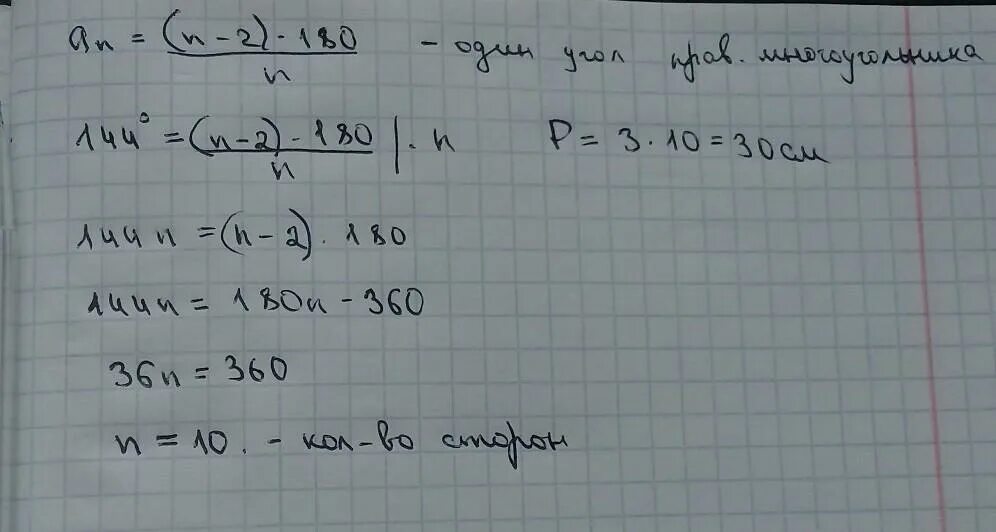 aₙ = (n-2)·180 / n - один угол прав. многоугольника
144° = (n-2)·180 / n | · n P = 3·10 = 30 см
144n = (n-2)·180
144n = 180n - 360
36n = 360
n = 10. - кол-во сторон